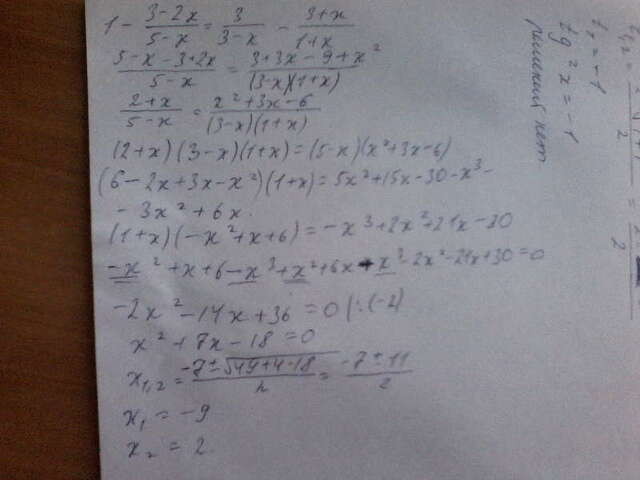 1 - (3-2x)/(5-x) = 3/(3-x) - (3+x)/(1+x)
(5-x-3+2x)/(5-x) = (3+3x-9+x²)/((3-x)(1+x))
(2+x)/(5-x) = (x²+3x-6)/((3-x)(1+x))
(2+x)(3-x)(1+x)=(5-x)(x²+3x-6)
(6-2x+3x-x²)(1+x)=5x²+15x-30-x³-
-3x²+6x.
(1+x)(-x²+x+6)=-x³+2x²+21x-30
-x²+x+6-x³+x²+6x+x³-2x²-21x+30=0
-2x²-14x+36=0 |:(-2)
x²+7x-18=0
x₁,₂ = (-7±√(49+4·18))/2 = (-7±11)/2
x₁ = -9
x₂ = 2.
t₁=-1
tg²x=-1
решений нет